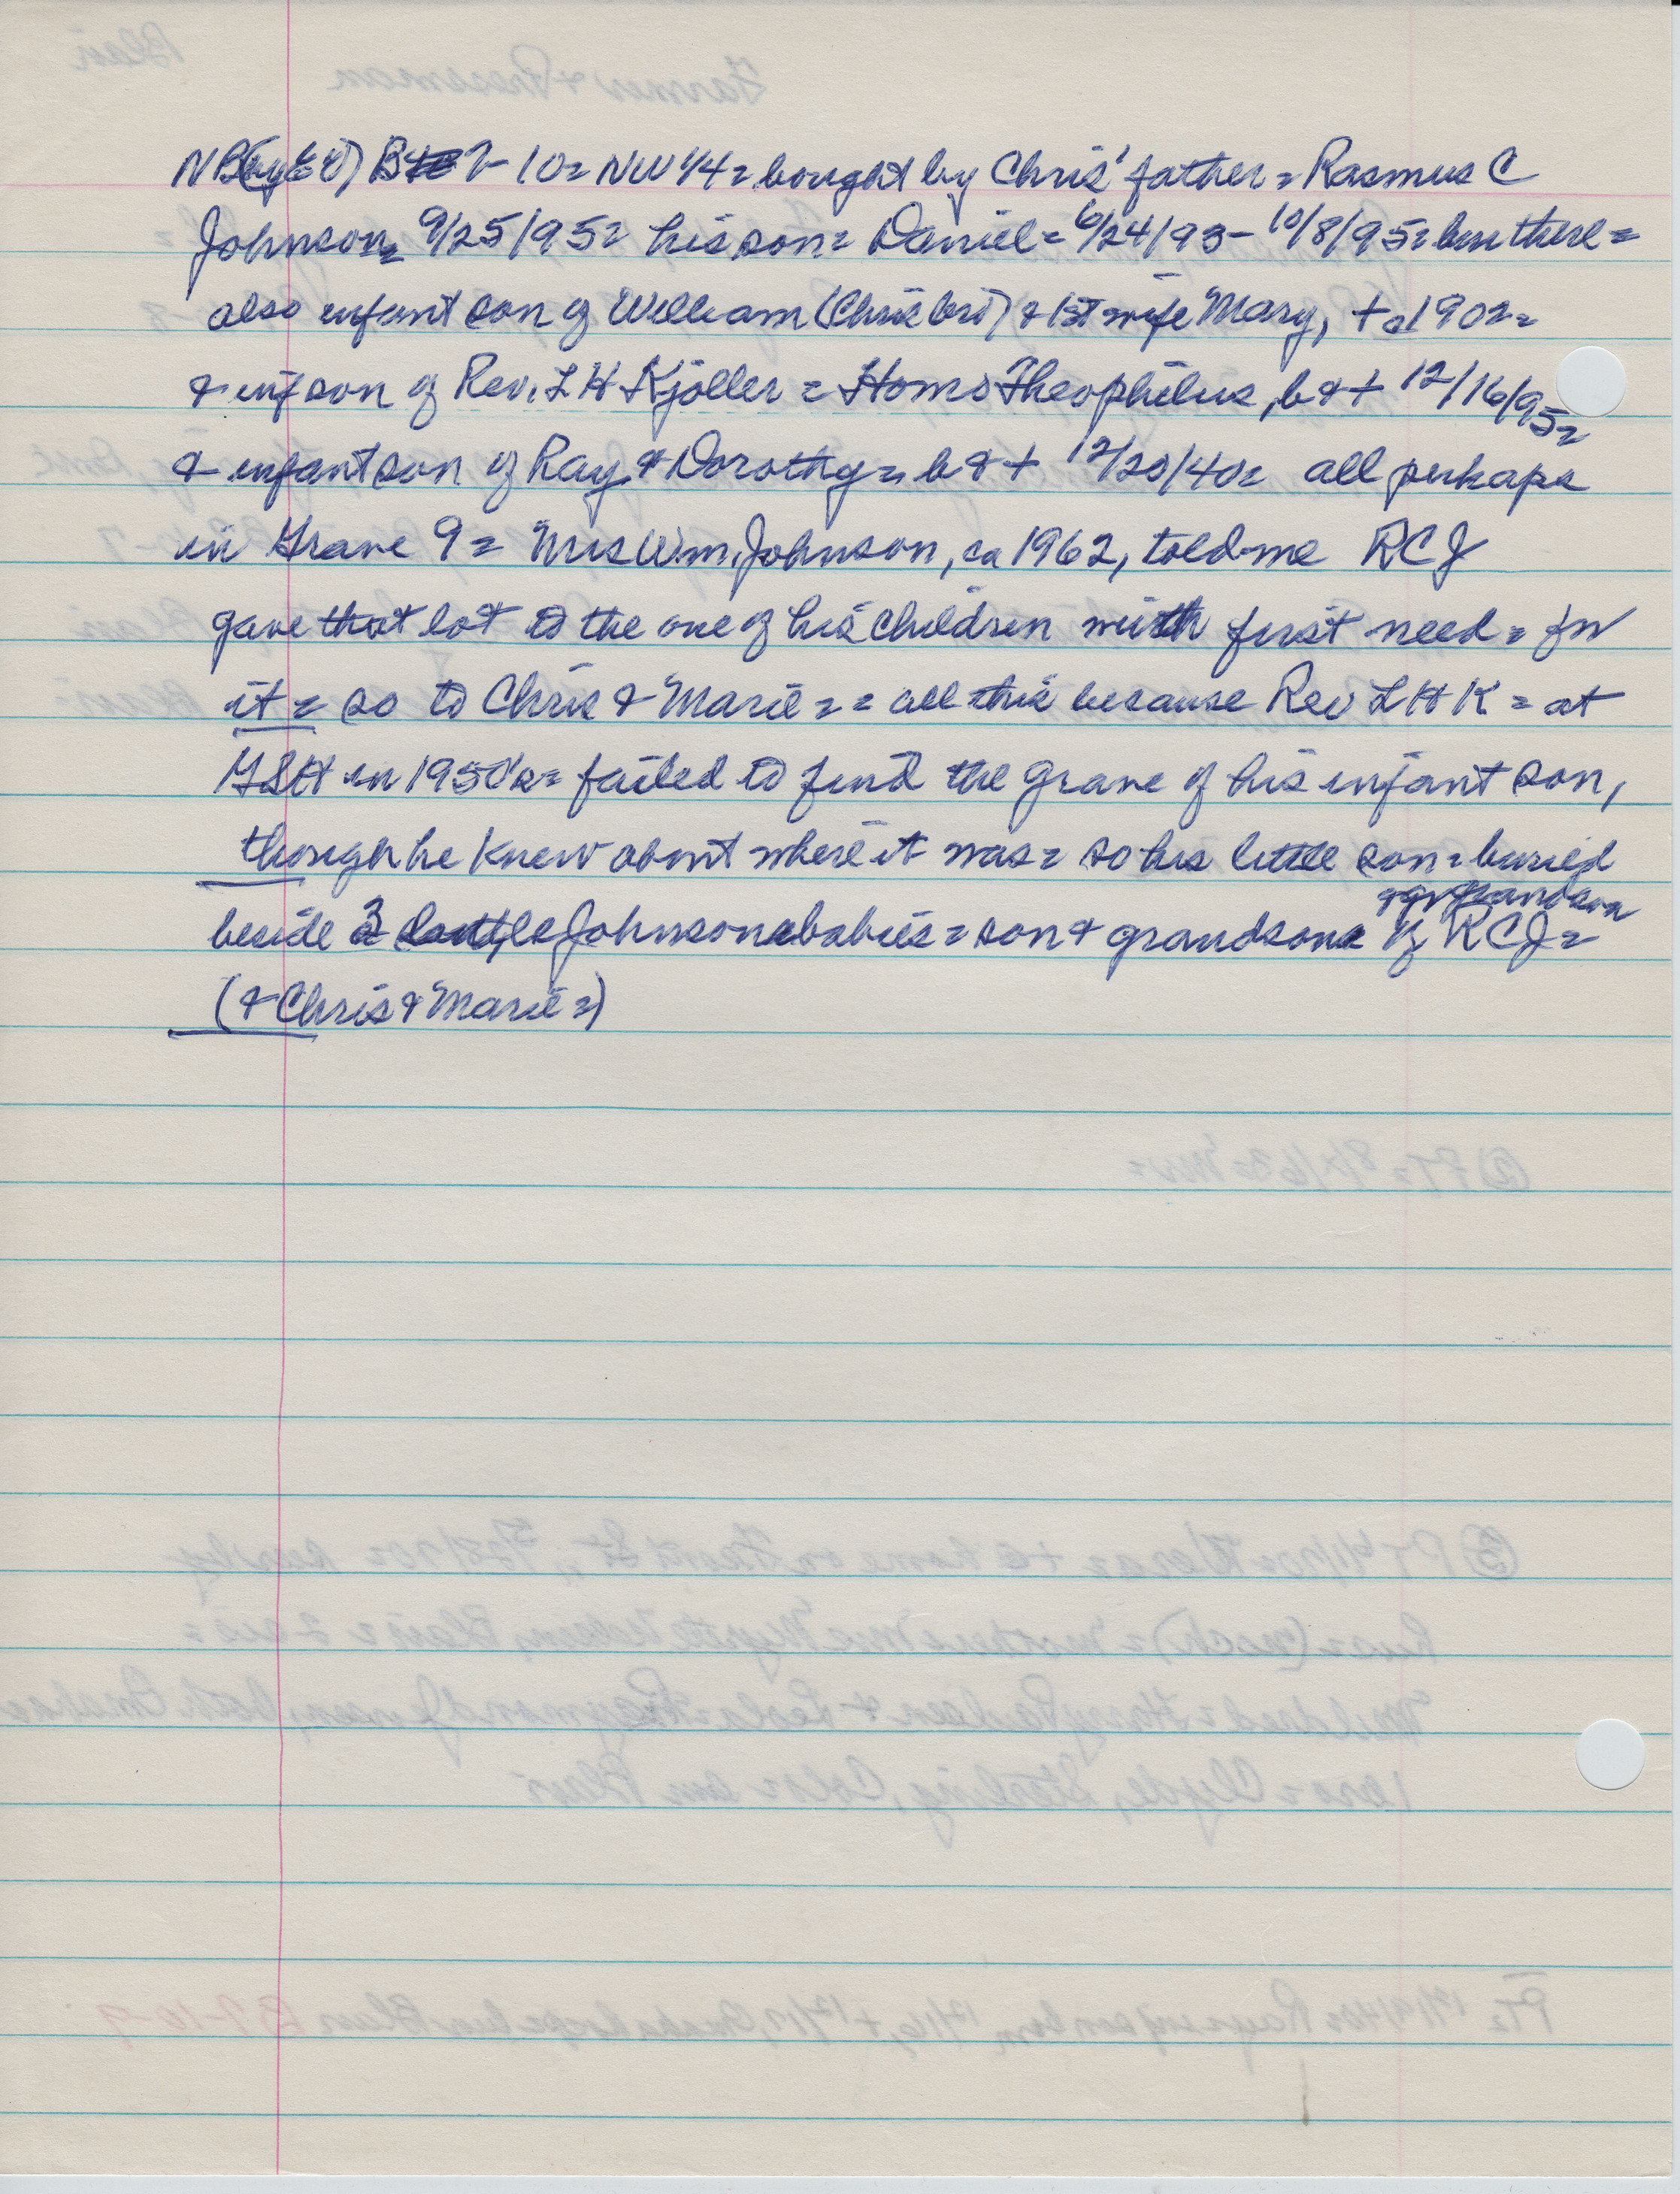 NB 7- 10= NW 1/4= bought by Chris' father = Rasmus C
Johnson= 9/25/95= his son= Daniel= 6/24/93- 10/8/95= bur there=
also infant son of William (Chris' bro) & 1st wife Mary, + 1902=
& inf son of Rev. L H Kjöller = Homo Theophilus, b & + 12/16/95=
& infant son of Ray & Dorothy= b & + 12/20/40= all perhaps
in Grave 9= Mrs Wm. Johnson, ca 1962, told me RCJ
gave that lot to the one of his children with first need = for
it= so to Chris & Marie= = all this because Rev L H K = at
GSH in 1950's= failed to find the grave of his infant son,
though he knew about where it was= so his little son= buried
beside 3 little Johnson babies= son & grandsons & gr grandson of RCJ=
(& Chris & Marie=)